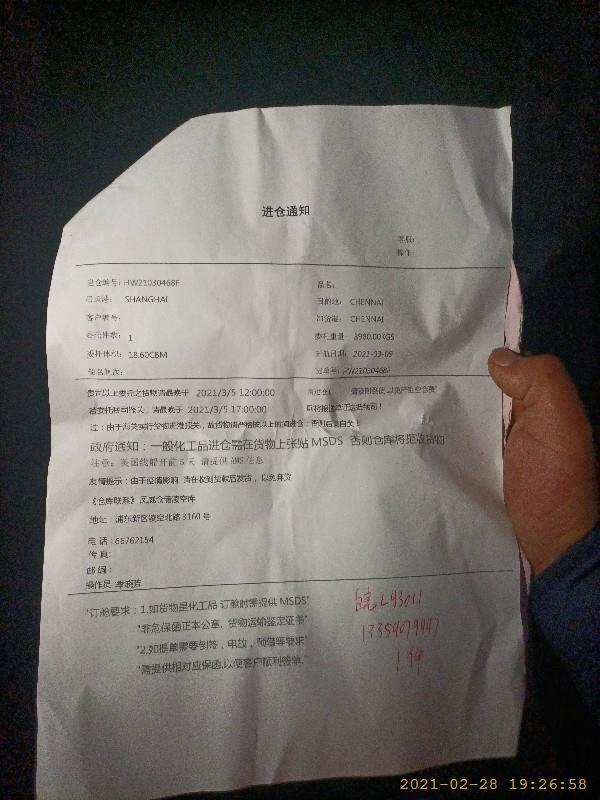 进仓通知
客服:
操作:
进仓编号: HW21030468F
品名:
启运港: SHANGHAI
目的地: CHENNAI
客户编号:
卸货港: CHENNAI
委托件数: 1
委托重量 3980.00KGS
委托体积: 18.60CBM
开船日期: 2021-03-09
船名航次:
运单号: HW21030468F
贵司以上委托之货物请最晚于 2021/3/5 12:00:00
若委托我司报关, 请最晚于 2021/3/5 17:00:00
注: 由于海关实行货物进港报关, 故货物请严格按以上时间进仓; 否则后果自负!
政府通知: 一般化工品进仓需在货物上张贴 MSDS 否则仓库将拒收货物
注意: 美国线船开前 5 天 请提供 AMS 信息
友情提示: 由于疫情影响 请在收到货款后发货, 以免弃货
《仓库联系》凤城仓储凌空库
地址: 浦东新区凌空北路 3160 号
电 话: 66762154
传 真:
邮 编:
操作员 李晓芳
"订舱要求: 1,如货物是化工品 订舱时需提供 MSDS"
"非危保函正本公章, 货物运输鉴定证书"
"2,如提单需要倒签, 电放, 预借等要求"
"需提供相对应保函,以便客户顺利签单."
皖L93011
1件
2021-02-28 19:26:58